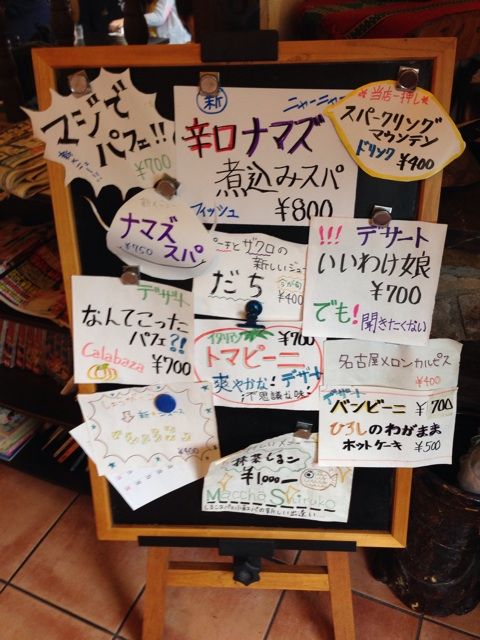 マジで
パフェ!!
¥700
新
ニャーニャー
辛口ナマズ
煮込みスパ
フィッシュ
¥800
当店一押し
スパークリング
マウンテン
ドリンク ¥400
ナマズ
¥750 スパ
ピーチとザクロの
新しいジュース
だち
¥400
!!! デザート
いいわけ娘
¥700
でも!聞きたくない
デザート
なんてこった
パフェ?!
Calabaza ¥700
イタリアン ¥700
トマピーニ
爽やかな! デザート
不思議な味!
名古屋メロンカルピス
¥400
デザート
バンビーニ ¥700
ひろしのわがまま
ホットケーキ ¥500
¥400
抹茶しるこ
¥1000
Maccha Shiruko